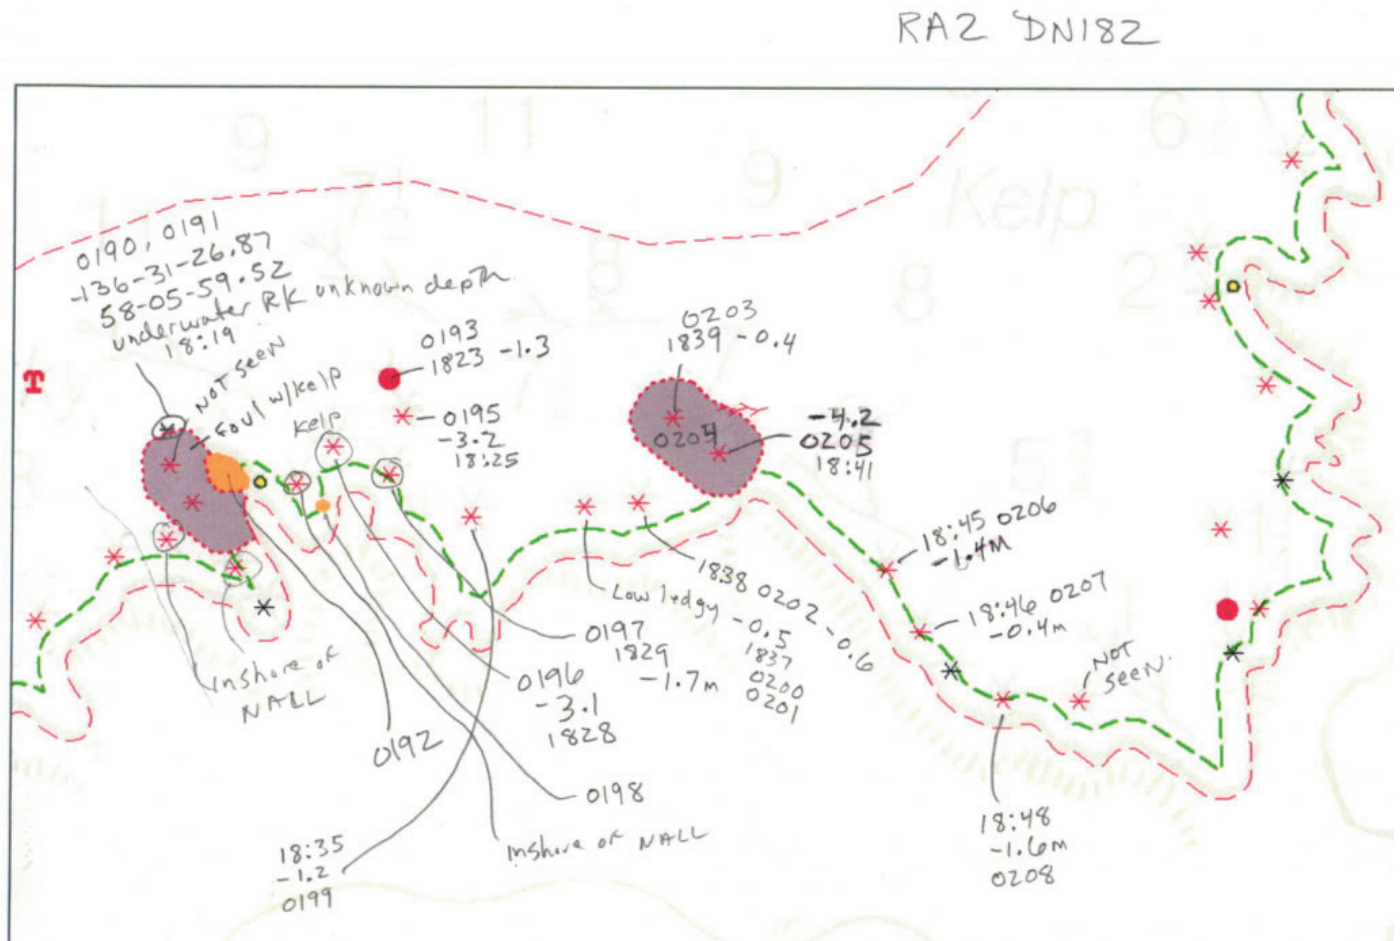 RA2 DN182
9
11
9
6
7
8
Kelp
8
2
5
1
0190, 0191
-136-31-26.87
58-05-59.52
underwater RK unknown depth
18:19
NOT seen
foul w/kelp
Kelp
T
0193
1823 -1.3
0195
-3.2
18:25
0203
1839 -0.4
0204
-4.2
0205
18:41
18:45 0206
-1.4M
18:46 0207
-0.4m
NOT
seen.
1838 0202 -0.6
Low ledgy -0.5
1837
0200
0201
0197
1829
-1.7m
0196
-3.1
1828
inshore of
NALL
0192
0198
inshore of NALL
18:35
-1.2
0199
18:48
-1.6m
0208